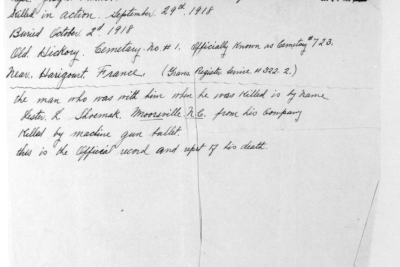 Killed in action. September 29th 1918
Buried October 2d 1918
Old Hickory. Cemetary. No # 1. Officially Known as Cemetary # 723.
Near, Harigourt France. (Grave Register Service # 322. 2.)
the man who was with him when he was killed is by name
Lester. L Shoemak. Moorsville N.C. from his Company
Killed by machine gun bullet.
this is the Official record and reprt of his death